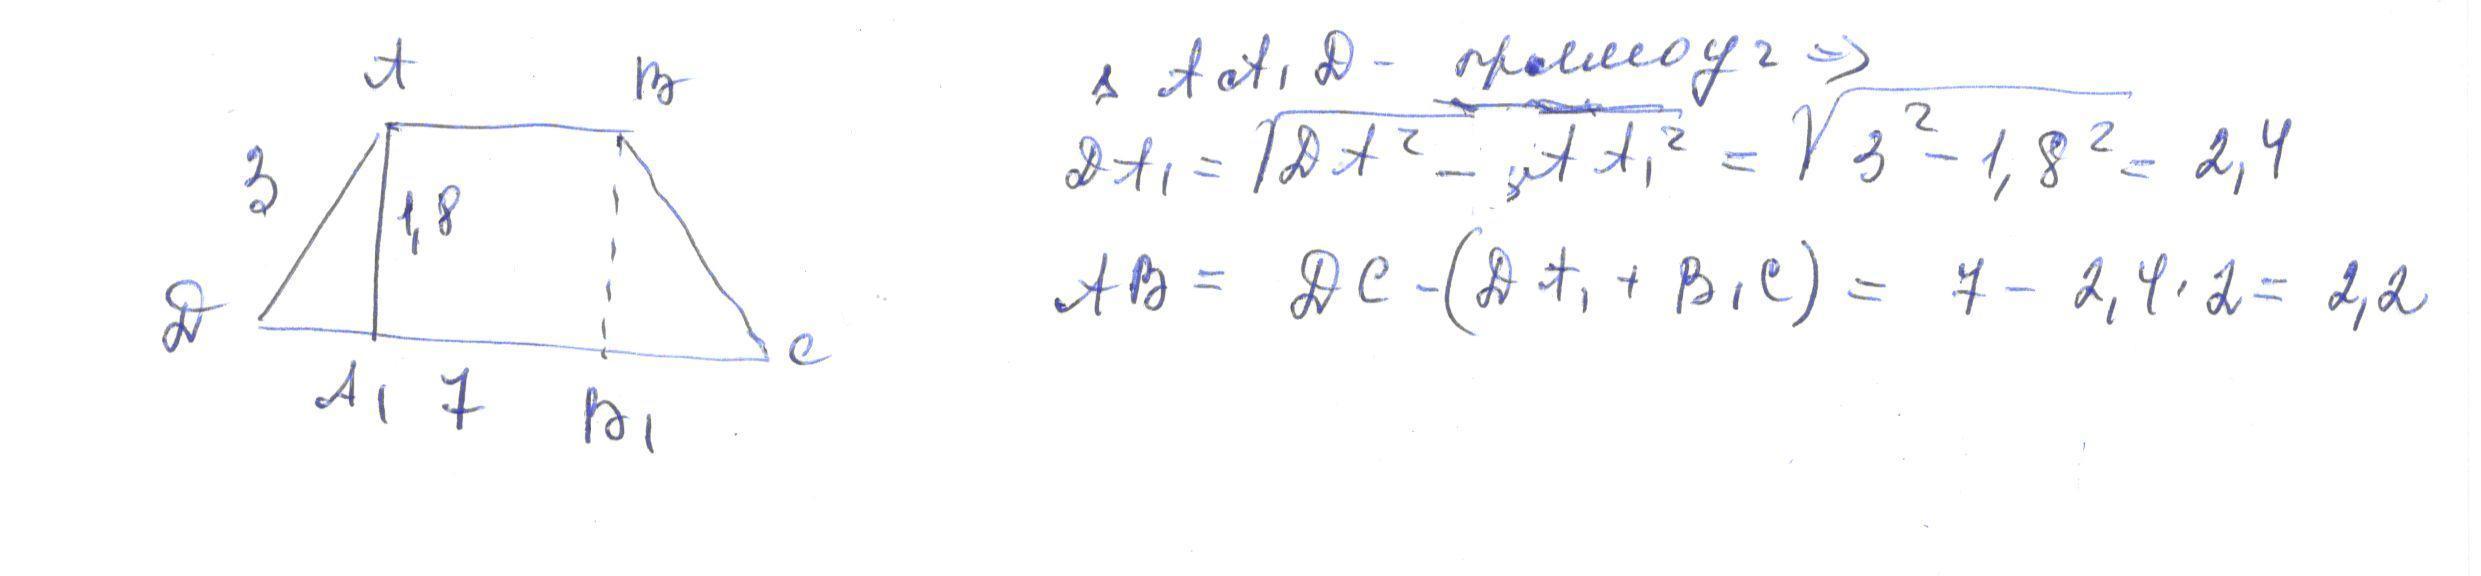 A
B
3
1,8
Д
C
A₁
7
B₁
Δ AA₁Д - прямоуг =>
ДA₁ = √(ДA² - AA₁²) = √(3² - 1,8²) = 2,4
AB = ДC - (ДA₁ + B₁C) = 7 - 2,4 · 2 = 2,2